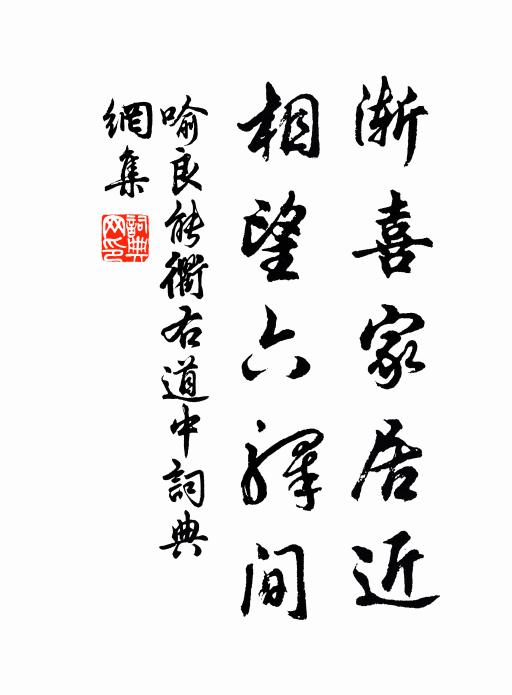 漸喜家居近
相望六驛間
喻良能衢右道中詞典
網集
詞典
网印